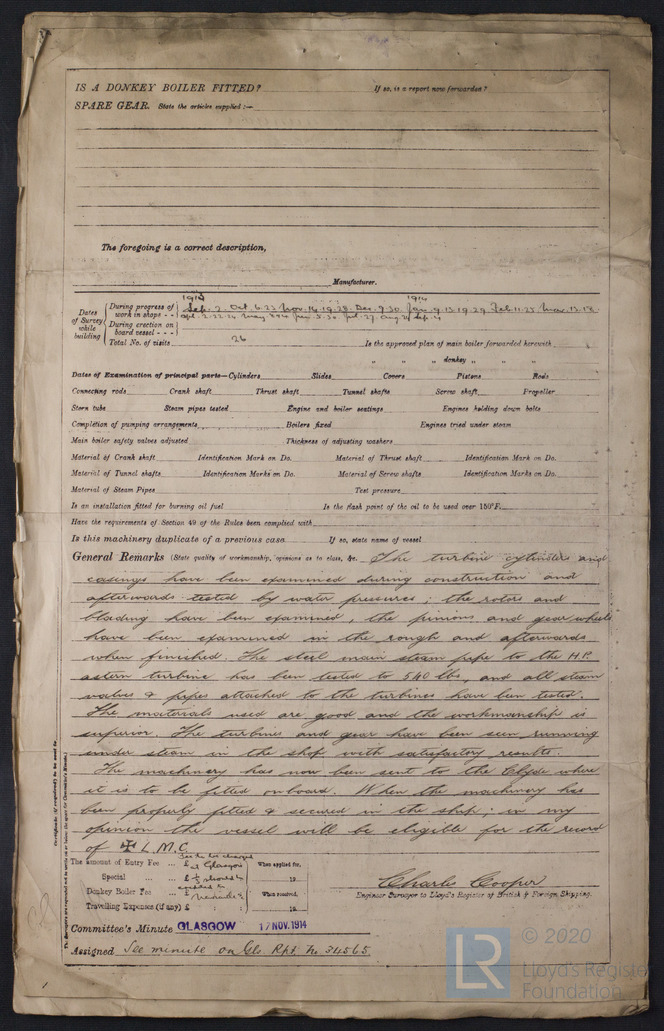 IS A DONKEY BOILER FITTED? If so, is a report now forwarded?
SPARE GEAR. State the articles supplied :—
The foregoing is a correct description,
Manufacturer.
1913 1914
Dates of Survey while building
During progress of work in shops - - Sep. 2. Oct. 6. 23 Nov. 14. 19. 28. Dec. 9. 30 Jan. 9. 13. 19. 29. Feb. 11. 23 Mar. 13. 18
During erection on board vessel - - -
Total No. of visits 26 Is the approved plan of main boiler forwarded herewith
" " " donkey " " "
Dates of Examination of principal parts—Cylinders Slides Covers Pistons Rods
Connecting rods Crank shaft Thrust shaft Tunnel shafts Screw shaft Propeller
Stern tube Steam pipes tested Engine and boiler seatings Engines holding down bolts
Completion of pumping arrangements Boilers fixed Engines tried under steam
Main boiler safety valves adjusted Thickness of adjusting washers
Material of Crank shaft Identification Mark on Do. Material of Thrust shaft Identification Mark on Do.
Material of Tunnel shafts Identification Marks on Do. Material of Screw shafts Identification Marks on Do.
Material of Steam Pipes Test pressure
Is an installation fitted for burning oil fuel Is the flash point of the oil to be used over 150°F.
Have the requirements of Section 49 of the Rules been complied with
Is this machinery duplicate of a previous case If so, state name of vessel
General Remarks (State quality of workmanship, opinions as to class, &c. The turbine cylinders and
casings have been examined during construction and
afterwards tested by water pressures; the rotors and
blading have been examined, the pinions and gear wheels
have been examined in the rough and afterwards
when finished. The steel main steam pipe to the H.P.
astern turbine has been tested to 540 lbs, and all steam
valves & pipes attached to the turbines have been tested.
The materials used are good and the workmanship is
superior. The turbines and gear have been seen running
under steam in the shop with satisfactory results.
The machinery has now been sent to the Clyde where
it is to be fitted onboard. When the machinery has
been properly fitted & secured in the ship; in my
opinion the vessel will be eligible for the record
of ✠ L.M.C.
The amount of Entry Fee ... £ at Glasgow When applied for,
Special ... ... £ 19
Donkey Boiler Fee ... £ When received,
Travelling Expenses (if any) £ 19
Charles Cooper
Engineer Surveyor to Lloyd's Register of British & Foreign Shipping.
Committee's Minute GLASGOW 17 NOV. 1914
Assigned See minute on Gls Rpt No 34565
© 2020
LR Lloyd's Register
Foundation